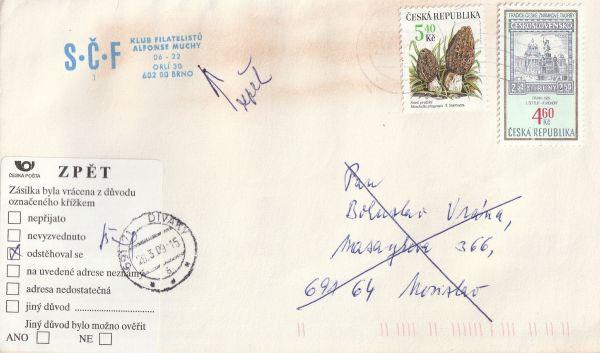 S·Č·F
1
KLUB FILATELISTŮ
ALFONSE MUCHY
06 - 22
ORLÍ 30
602 00 BRNO
zpět
ČESKÁ REPUBLIKA
5,40
Kč
TRADICE ČESKÉ ZNÁMKOVÉ TVORBY
ČESKOSLOVENSKO
4,60
Kč
ČESKÁ REPUBLIKA
Pan
Bohuslav Vrána,
Masarykova 366,
691 64 Nosislav
ČESKÁ POŠTA
ZPĚT
Zásilka byla vrácena z důvodu
označeného křížkem
nepřijato
nevyzvednuto
odstěhoval se
na uvedené adrese neznámý
adresa nedostatečná
jiný důvod ....................
Jiný důvod bylo možno ověřit
ANO NE
DIVÁKY
26.3.09-15
a
691 71